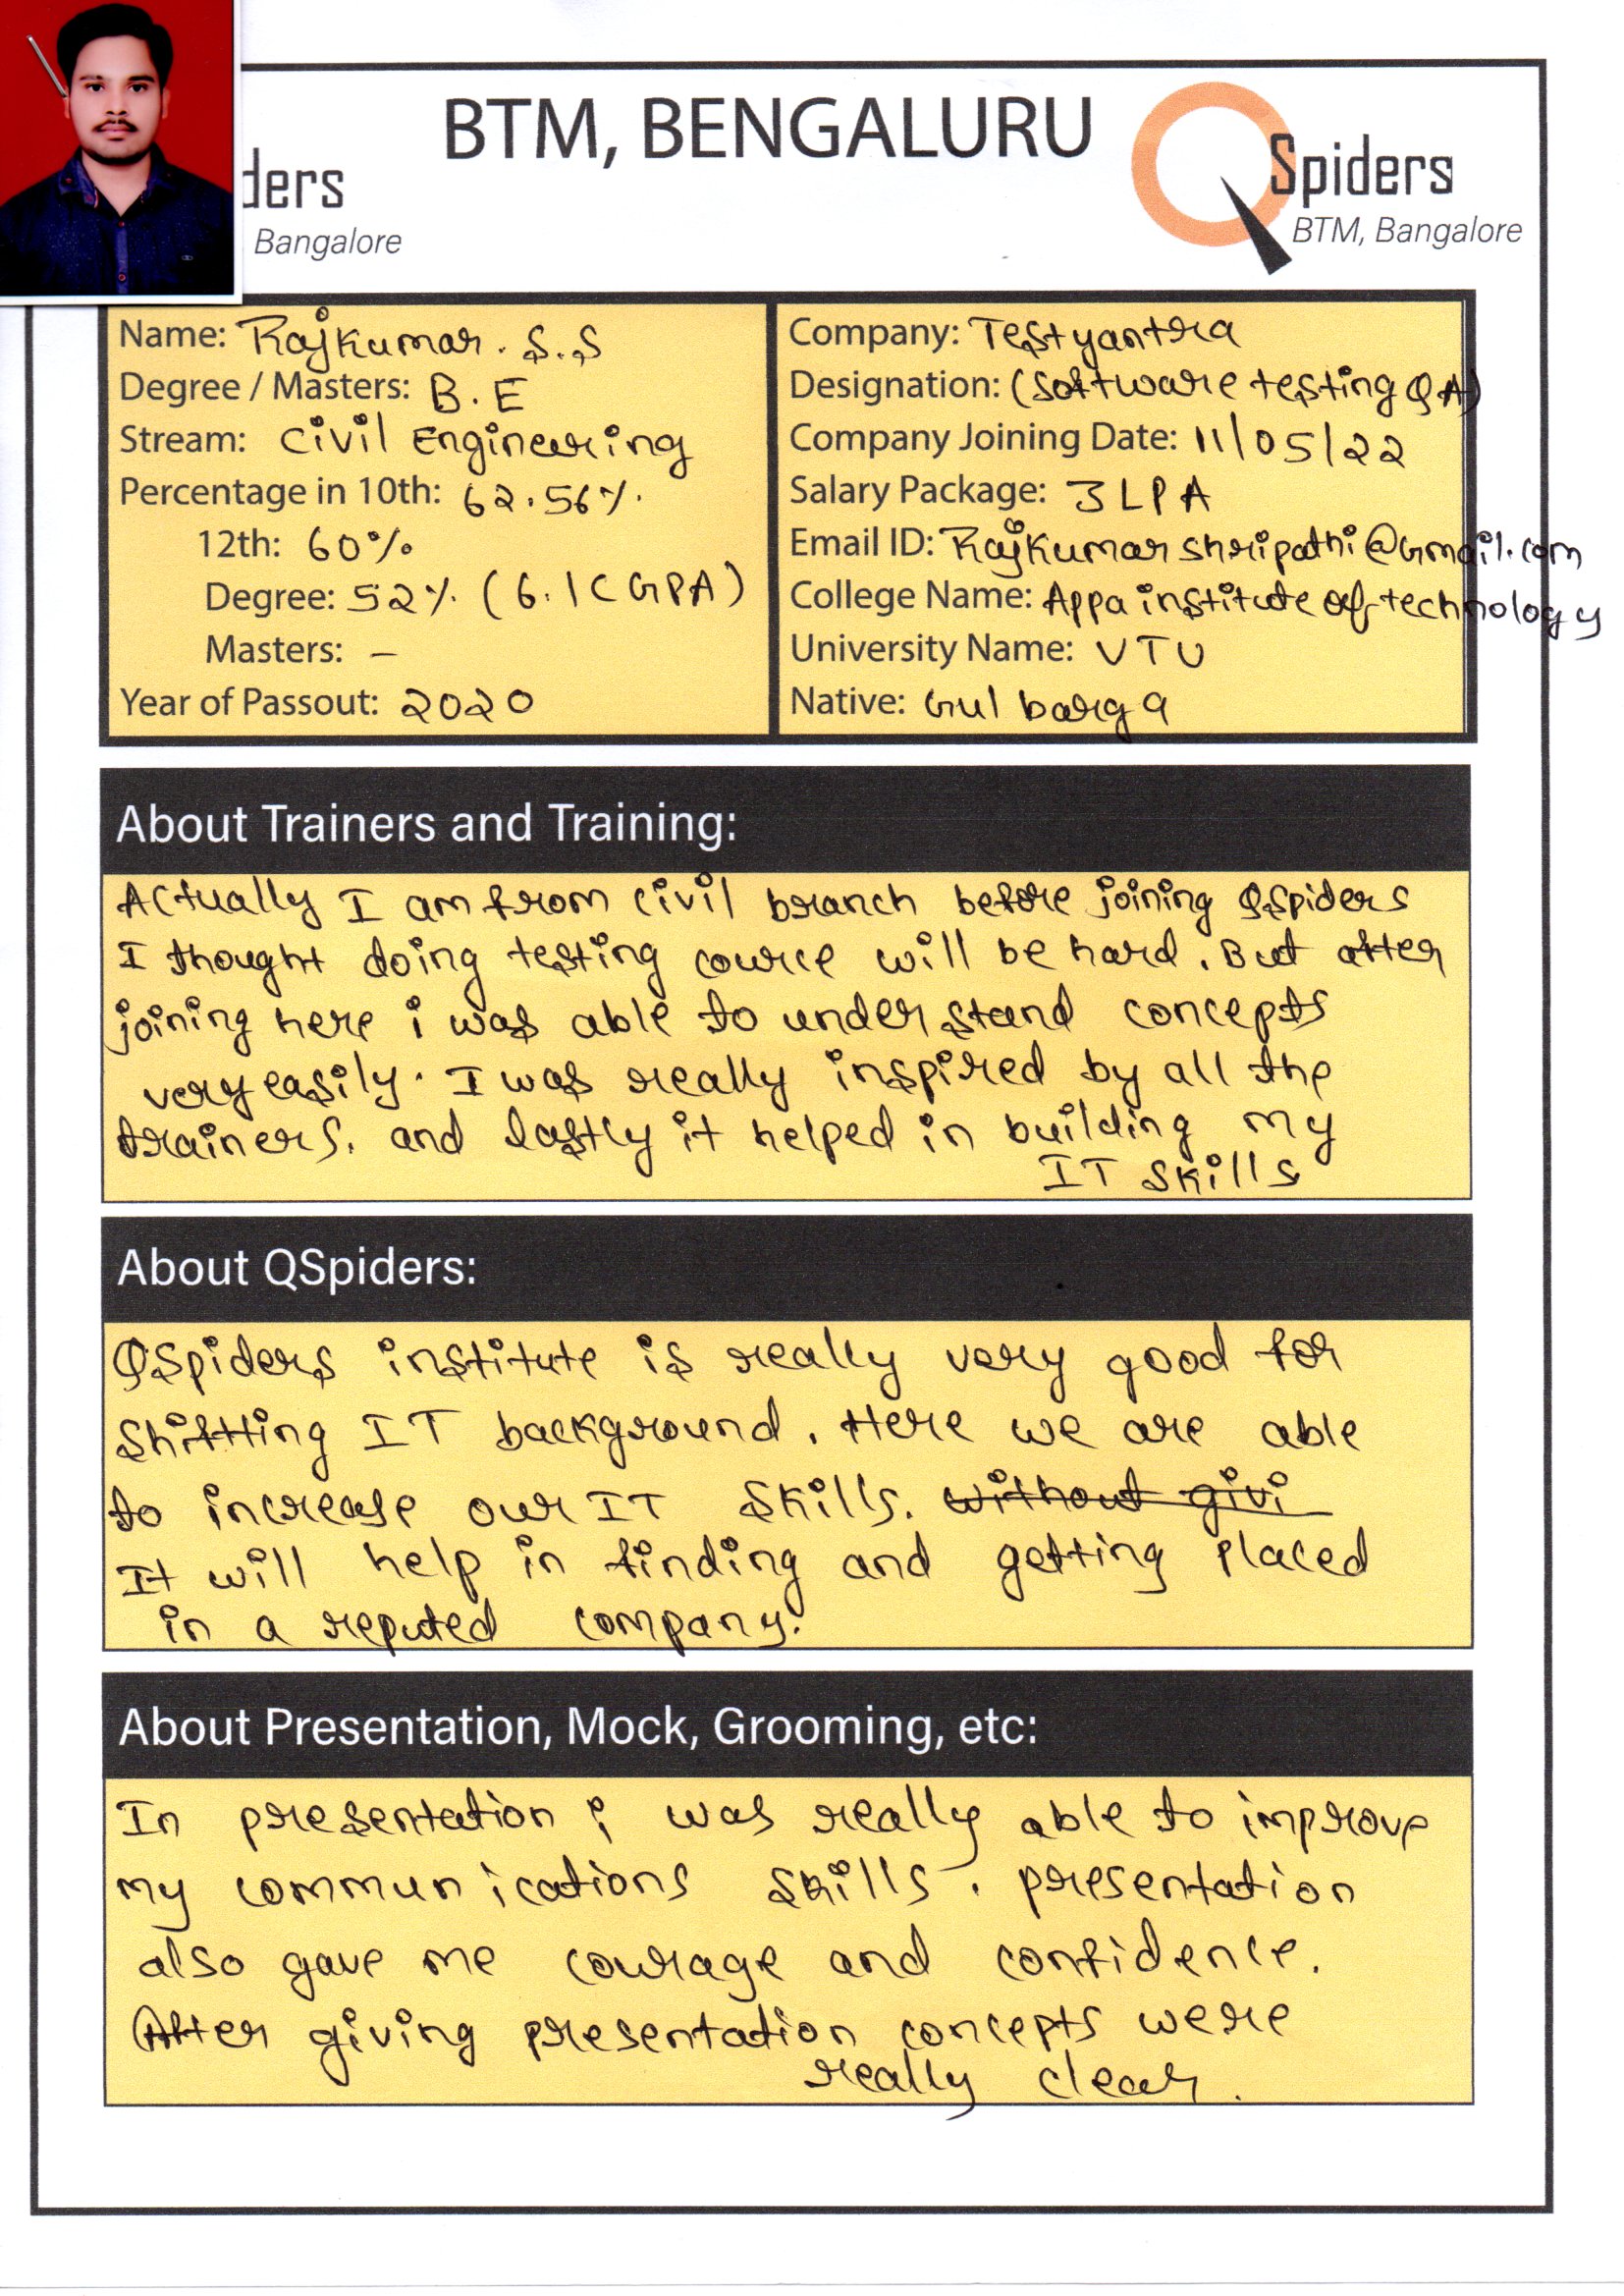 BTM, BENGALURU
ders
Bangalore
Spiders
BTM, Bangalore
Name: Rajkumar. S.S
Degree / Masters: B.E
Stream: Civil Engineering
Percentage in 10th: 62.56%.
12th: 60%
Degree: 52%. (6.1CGPA)
Masters: –
Year of Passout: 2020
Company: Testyantra
Designation: (Software testing QA)
Company Joining Date: 11/05/22
Salary Package: 3LPA
Email ID: Rajkumarshripathi@Gmail.com
College Name: Appa institute of technology
University Name: VTU
Native: Gulbarga
About Trainers and Training:
Actually I am from civil branch before joining QSpiders
I thought doing testing cource will be hard. But after
joining here i was able to understand concepts
very easily. I was really inspired by all the
trainers. and lastly it helped in building my
IT skills
About QSpiders:
QSpiders institute is really very good for
Shiftting IT background. Here we are able
to increase our IT skills. without givi
It will help in finding and getting placed
in a reputed company.
About Presentation, Mock, Grooming, etc:
In presentation i was really able to improve
my communications skills. presentation
also gave me courage and confidence.
After giving presentation concepts were
really clear.